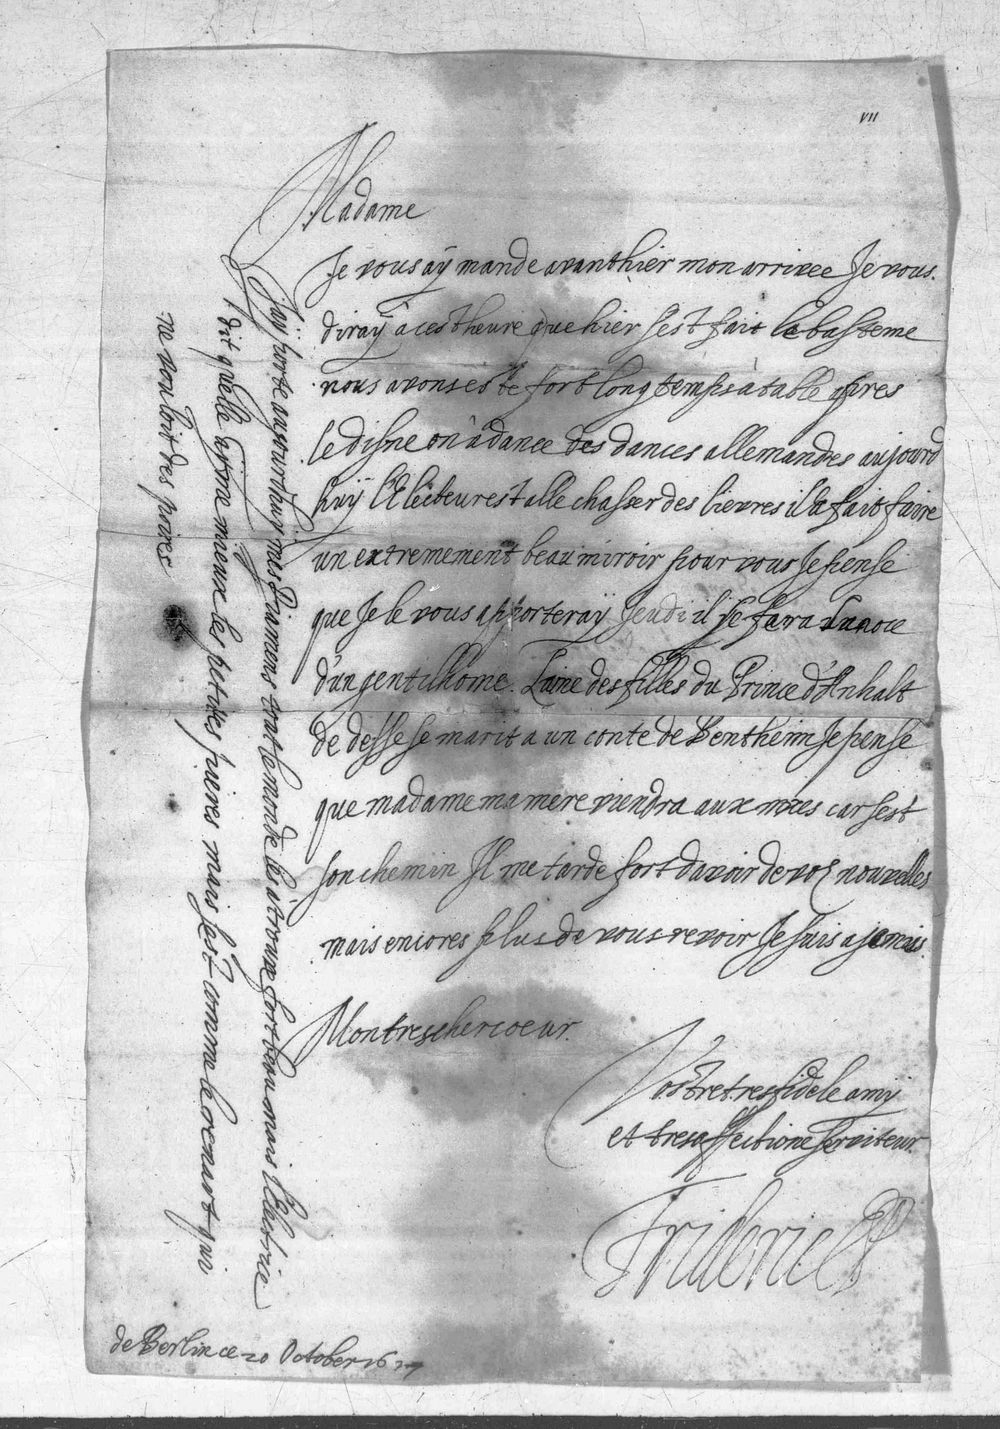 VII
Madame
Je vous aÿ mande avanthier mon arrivee Je vous
diraÿ à cest heure que hier sest fait le basteme
nous avons este fort long temps à table apres
le disne on à dance des dances allemandes aujourd
huÿ l'Electeur est alle chasser des lievres il a fait faire
un extremement beau miroir pour vous Je pense
que Je le vous apporteraÿ Jeudi il se fera la noce
d'un gentilhome. L'aine des filles du Prince d'Anhalt
de desse se marit a un conte de Bentheim Je pense
que madame ma mere viendra aux noces car sest
son chemin Il me tarde fort davoir de voz nouvelles
mais encores plus de vous revoir Je suis a jamais
Mon tres cher coeur.
Vostre tres fidele amÿ
et tres affectione serviteur.
Frideric
de Berlin ce 20 October 16
J'aÿ porte aujourdhuÿ mes diamens tout le monde les à trouve fort beau mais l'Electrice
dit quelle aÿme mieux les petittes pieres mais sest comme le renart qui
ne vouloit des poires